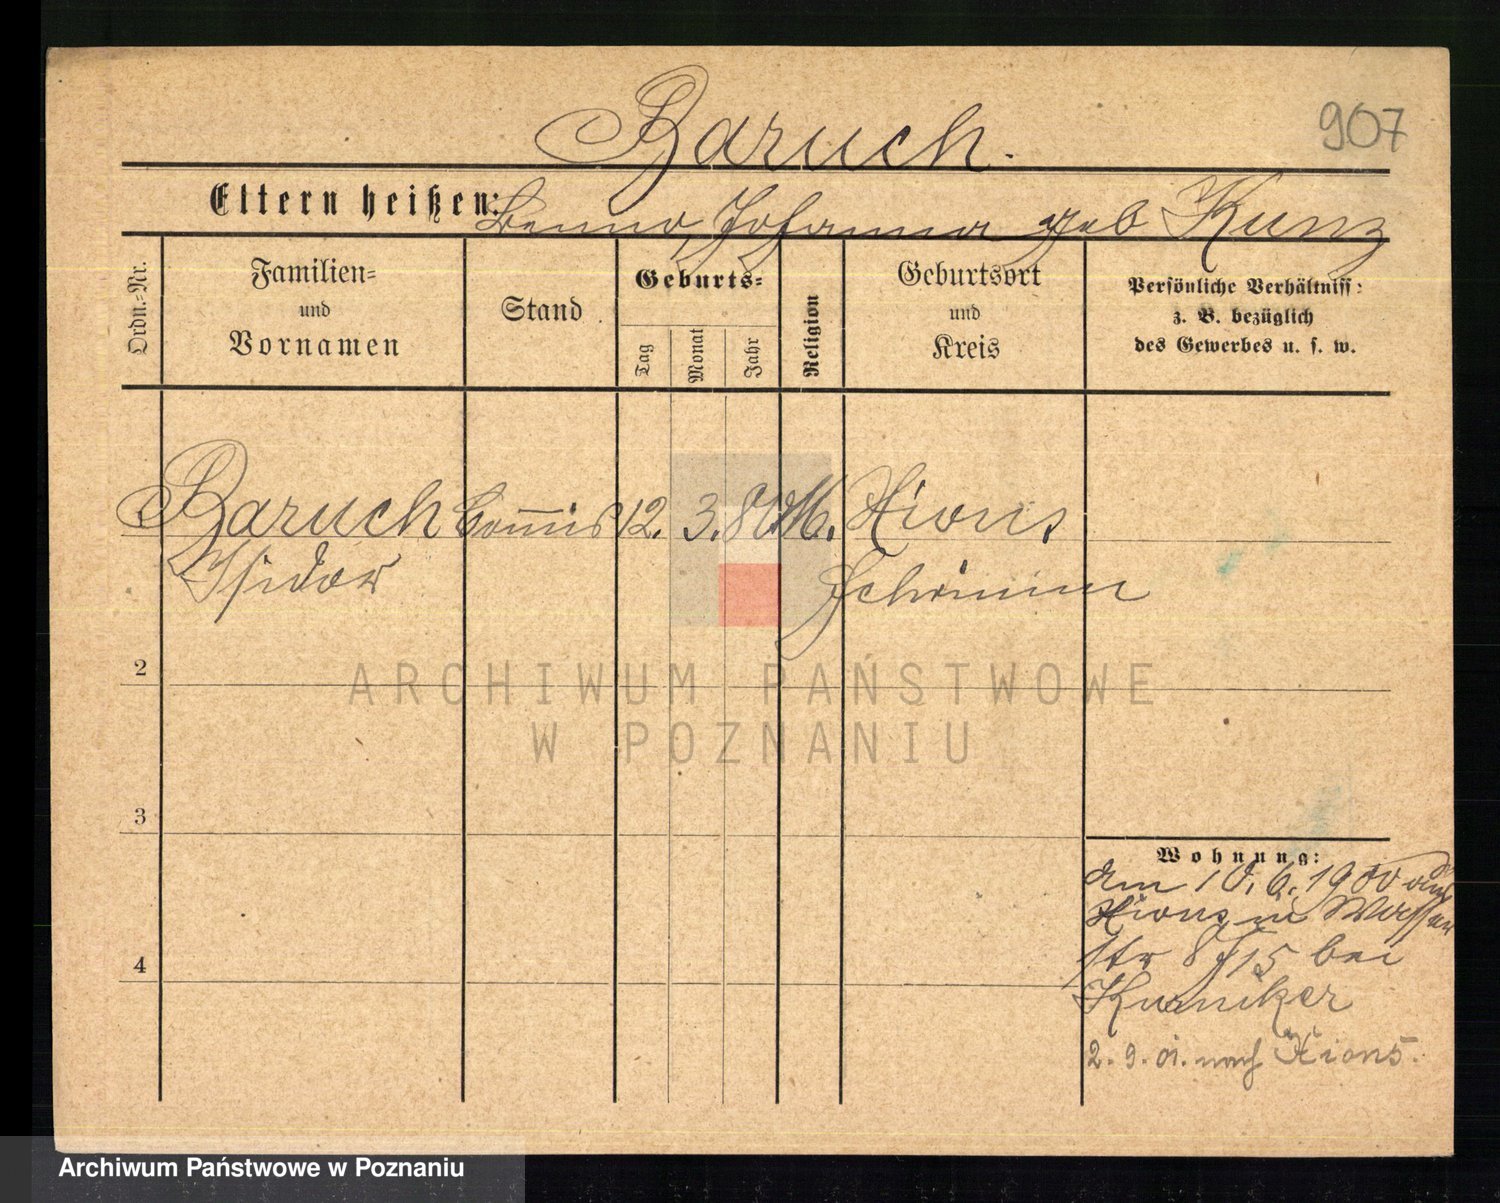 907
Baruch.
Eltern heißen: Benno, Johanna geb Kunz
Ordn.=Nr.
Familien=
und
Vornamen
Stand
Geburts=
Tag
Monat
Jahr
Religion
Geburtsort
und
Kreis
Persönliche Verhältniss:
z. B. bezüglich
des Gewerbes u. s. w.
Baruch Com̅is 12. 3. 80. M. Xions
Isidor Schrimm
2
3
4
ARCHIWUM PAŃSTWOWE
W POZNANIU
Wohnung:
Am 10.6.1900 aus
Xions in Wasser
str 8/15 bei
Kurniker
2.9.01. nach Xions.
Archiwum Państwowe w Poznaniu